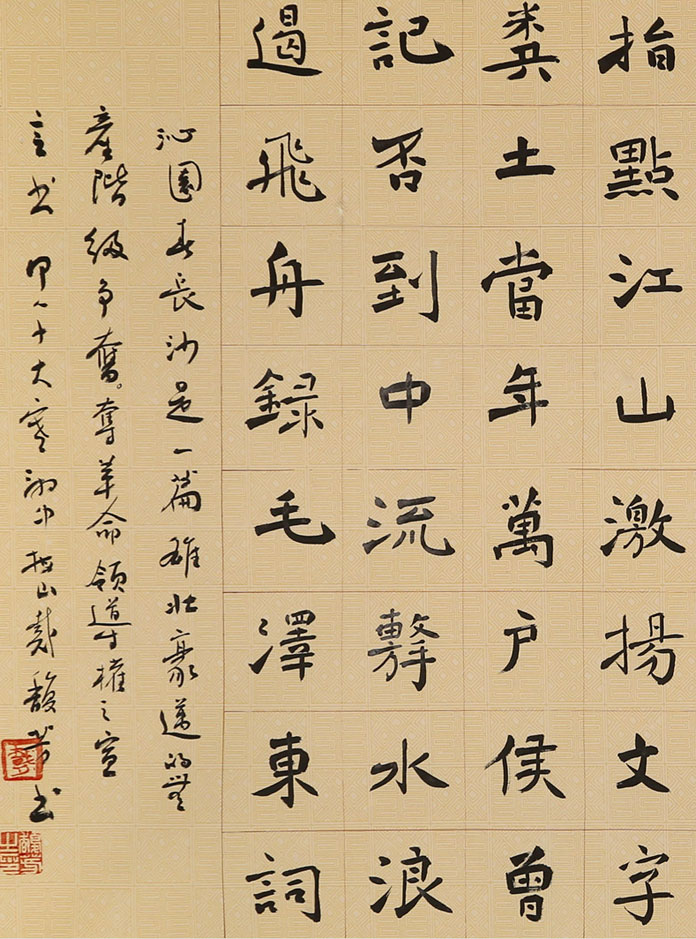 指點江山激揚文字
糞土當年萬户侯曾
記否到中流擊水浪
遏飛舟録毛澤東詞
沁園春長沙是一篇雄壯豪邁的無
產階級爭奮奪革命領導權之宣
言書 甲午大寒 山戴馥芳書